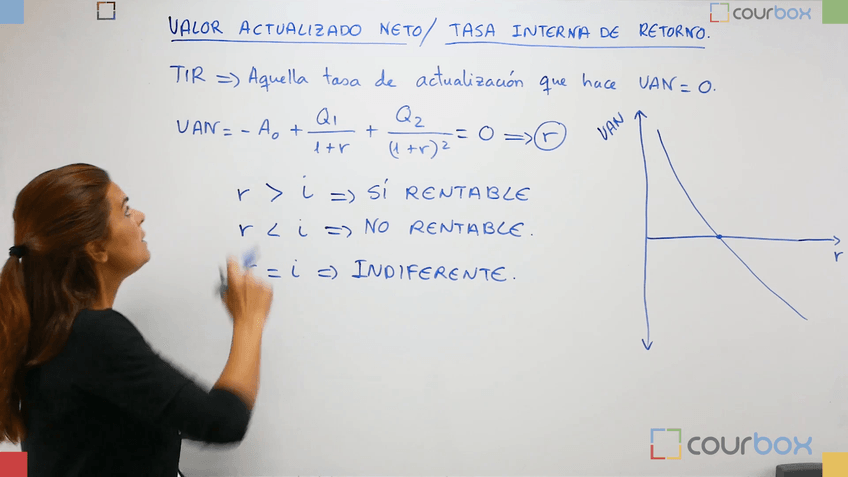 courbox
VALOR ACTUALIZADO NETO / TASA INTERNA DE RETORNO.
TIR => Aquella tasa de actualización que hace VAN = 0.
VAN = - A₀ + Q₁/(1+r) + Q₂/(1+r)² = 0 => r
VAN
r
r > i => SÍ RENTABLE
r < i => NO RENTABLE.
= i => INDIFERENTE.
courbox